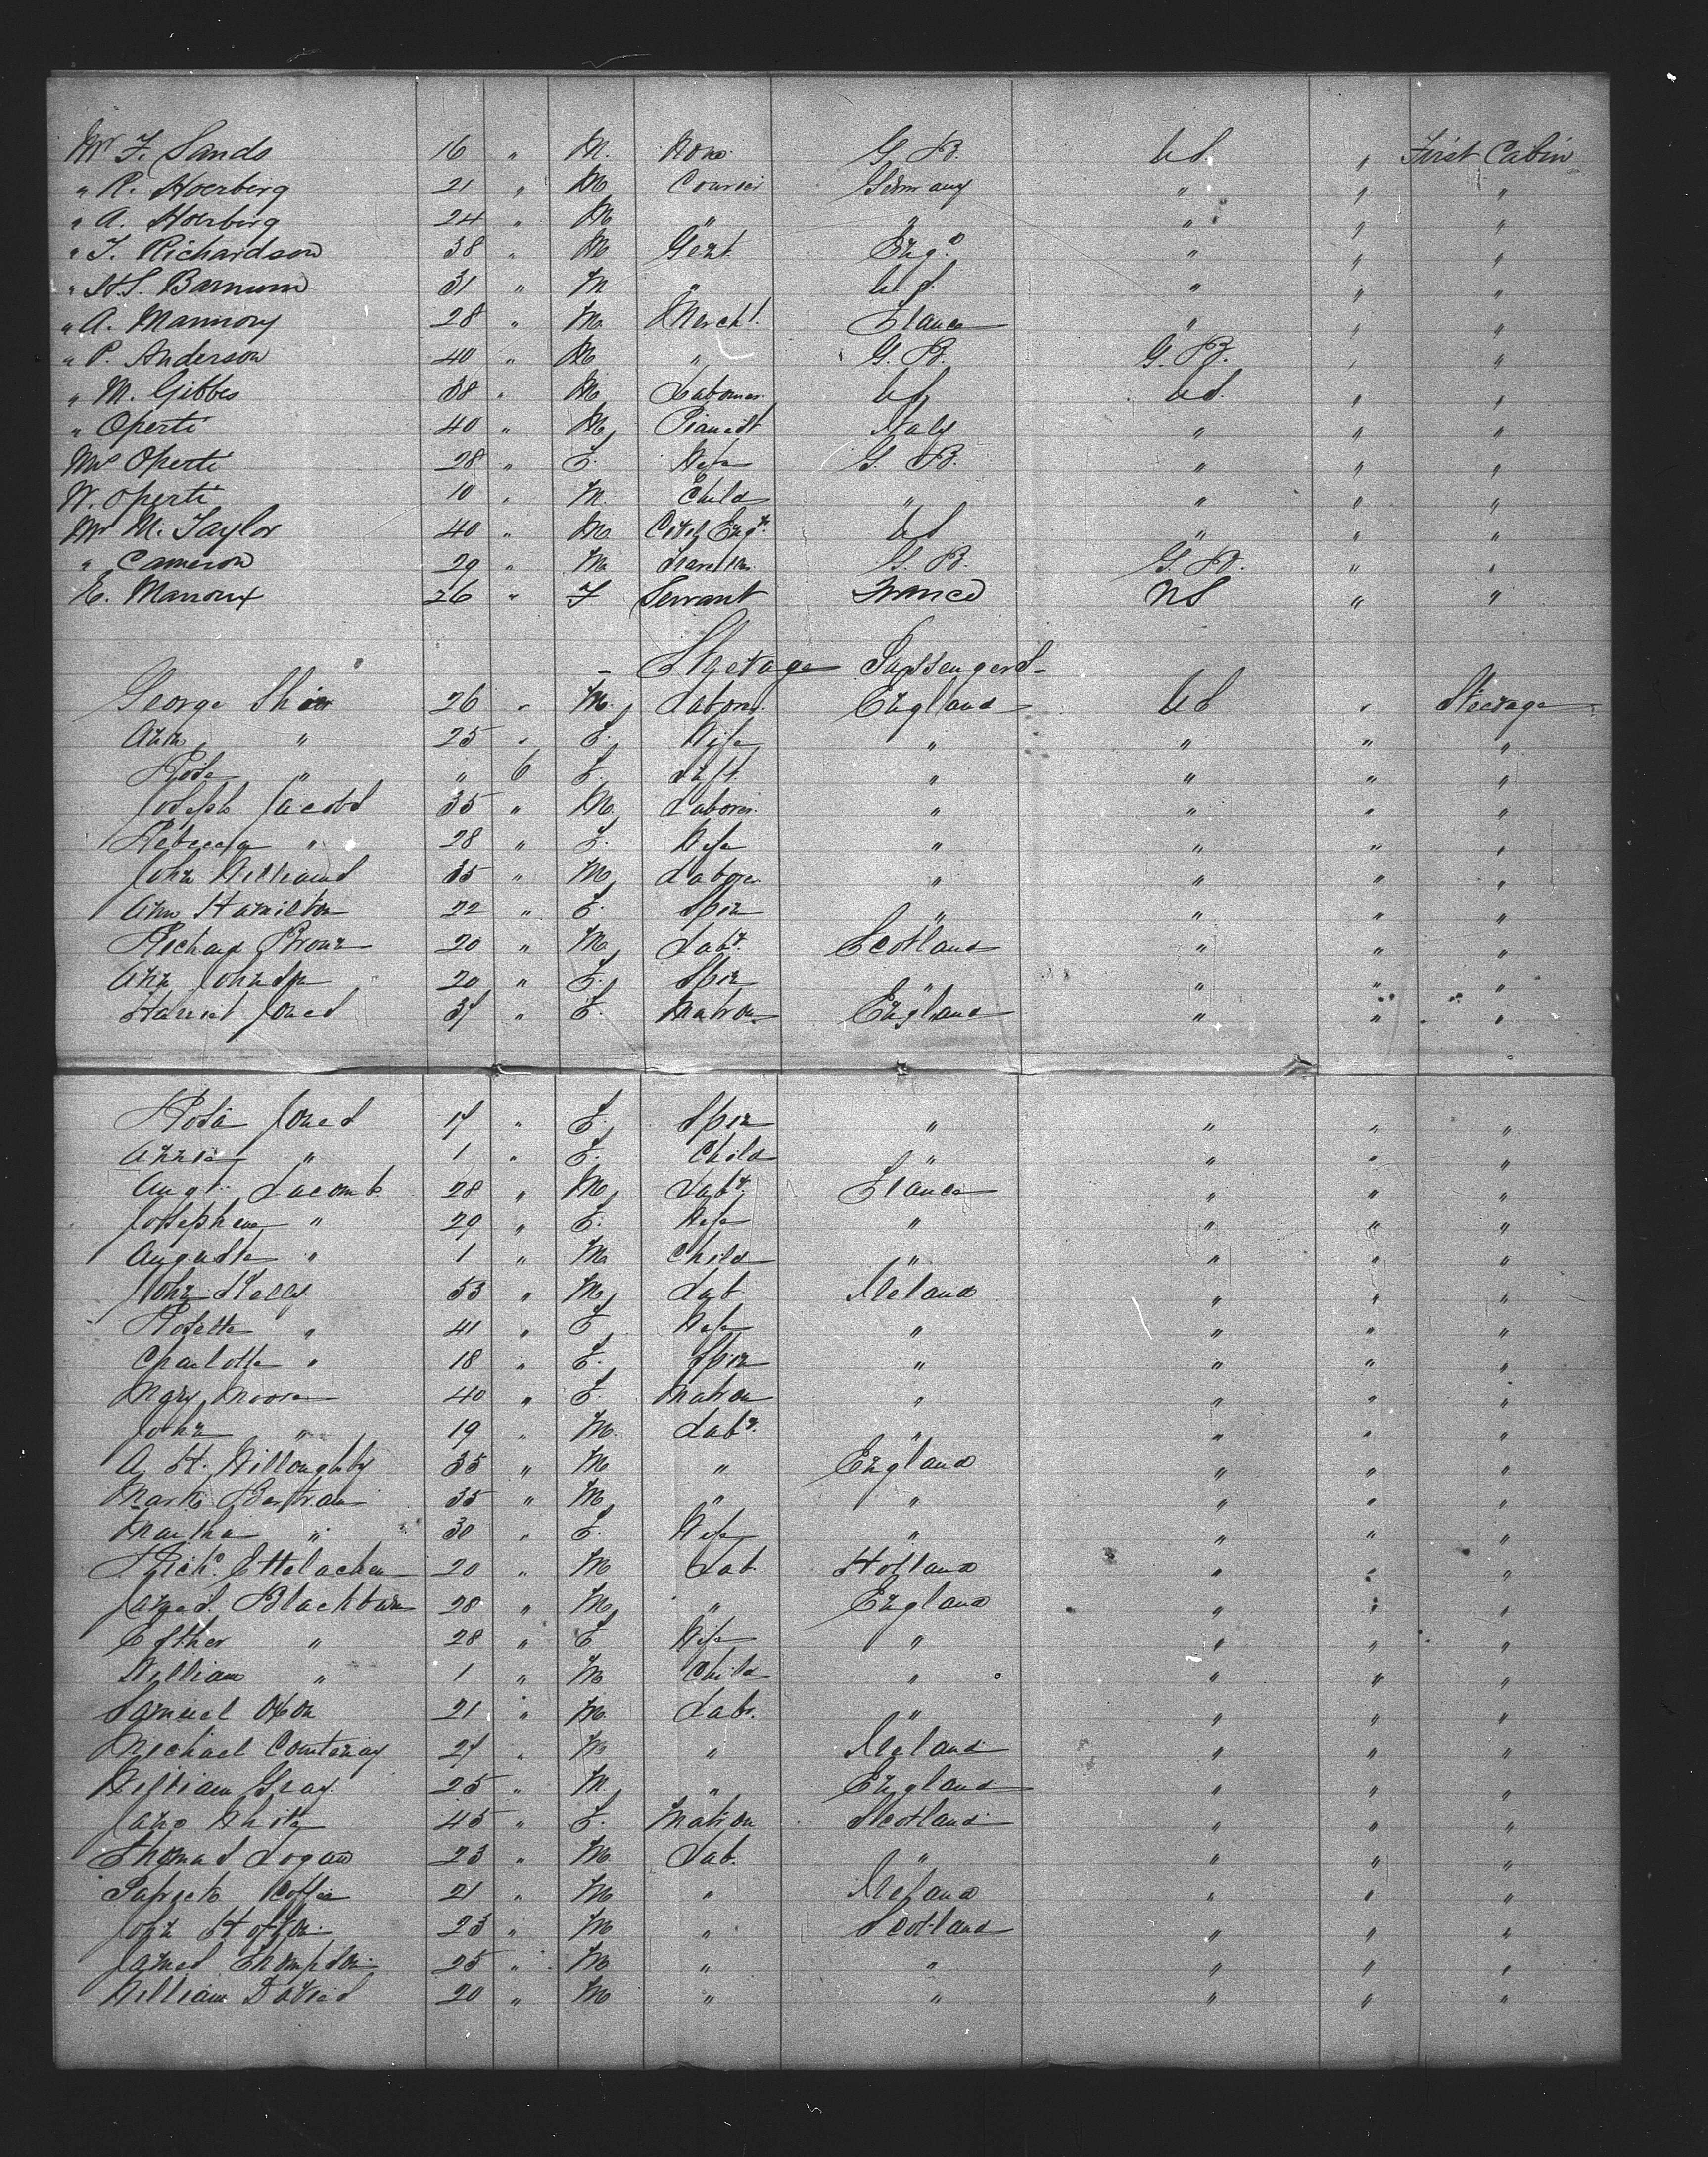 Mr F. Sands 16 " M. None G. B. U S. " First Cabin
" R. Hoerberg 21 " M Courier Germany " " "
" A. Hoerberg 24 " M " " " " "
" T. Richardson 38 " M Gent. Engd " " "
" H.S. Barnum 31 " M " U. S. " " "
" A. Mannory 28 " M Mercht. France " " "
" P. Anderson 40 " M " G. B. G. B. " "
" M. Gibbes 38 " M Laborer U S U S. " "
" Operti 40 " M Pianist Italy " " "
Mrs Operti 28 " F. Wife G. B. " " "
W. Operti 10 " M. Child " " " "
Mr M. Taylor 40 " M Civil Engr. U S " " "
" Cameron 29 " M G. B. G. B. " "
E. Manoux 26 " F Servant France US " "
- Steerage Passengers -
George Shaw 26 " M. Laborer England U S " Steerage
Ann " 25 " F. Wife " " " "
Rosa " " 6 F. Inft. " " " "
Joseph Jacobs 35 " M. Laborer " " " "
Rebecca " 28 " F. Wife " " " "
John Williams 35 " M Laborer " " " "
Ann Hamilton 22 " F. Spin " " " "
Richard Brown 20 " M Labr. Scotland " " "
Ann Johnson 20 " F. Spin " " " "
Harriet Jones 37 " F. Matron England " " "
Rosa Jones 17 " F. Spin " " " "
Annie " 1 " F. Child " " " "
Augt. Lacomb 28 " M Labr. France " " "
Josephine " 29 " F. Wife " " " "
Auguste " 1 " M Child " " " "
John Kelly 53 " M Lab. Ireland " " "
Rosetta " 41 " F Wife " " " "
Charlotte " 18 " F. Spin " " " "
Mary Moore 40 " F. Matron " " " "
John " 19 " M. Labr. " " " "
A. H. Willoughby 35 " M " England " " "
Mark Bertram 35 " M " " " " "
Martha " 30 " F. Wife " " " "
Richd. Ettelachen 20 " M Lab. Holland " " "
James Blackburn 28 " M " England " " "
Esther " 28 " F Wife " " " "
William " 1 " M Child " " " "
Samuel Oxon 21 " M Labr. " " " "
Michael Courtenay 27 " M " Ireland " " "
William Gray. 25 " M. " England " " "
Jane White 45 " F. Matron Scotland " " "
Thomas Logan 23 " M Lab. " " " "
Patrick Coffee 21 " M " Ireland " " "
John 23 " M " Scotland " " "
James Thompson 25 " M " " " " "
William Davies 20 " M " " " " "